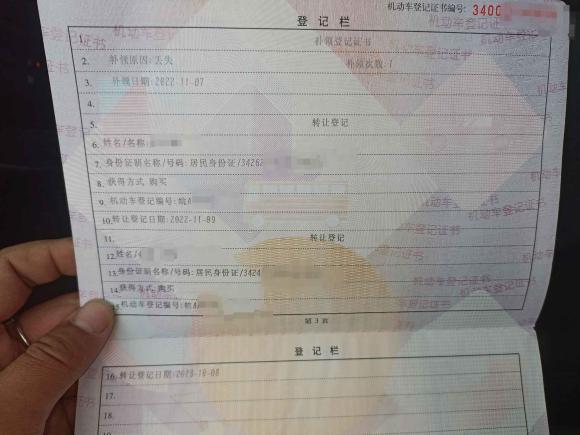 机动车登记证书编号: 3400
登记栏
1. 补领登记证书
2. 补领原因:丢失 补领次数:1
3. 补领日期:2022-11-07
4.
5. 转让登记
6. 姓名/名称:
7. 身份证明名称/号码:居民身份证/34262
8. 获得方式:购买
9. 机动车登记编号:皖A
10. 转让登记日期:2022-11-09
11. 转让登记
12. 姓名/
13. 身份证明名称/号码:居民身份证/3424
14. 获得方式:购买
15. 机动车登记编号:皖A
第 3 页
登记栏
16. 转让登记日期:
17.
18.
19.